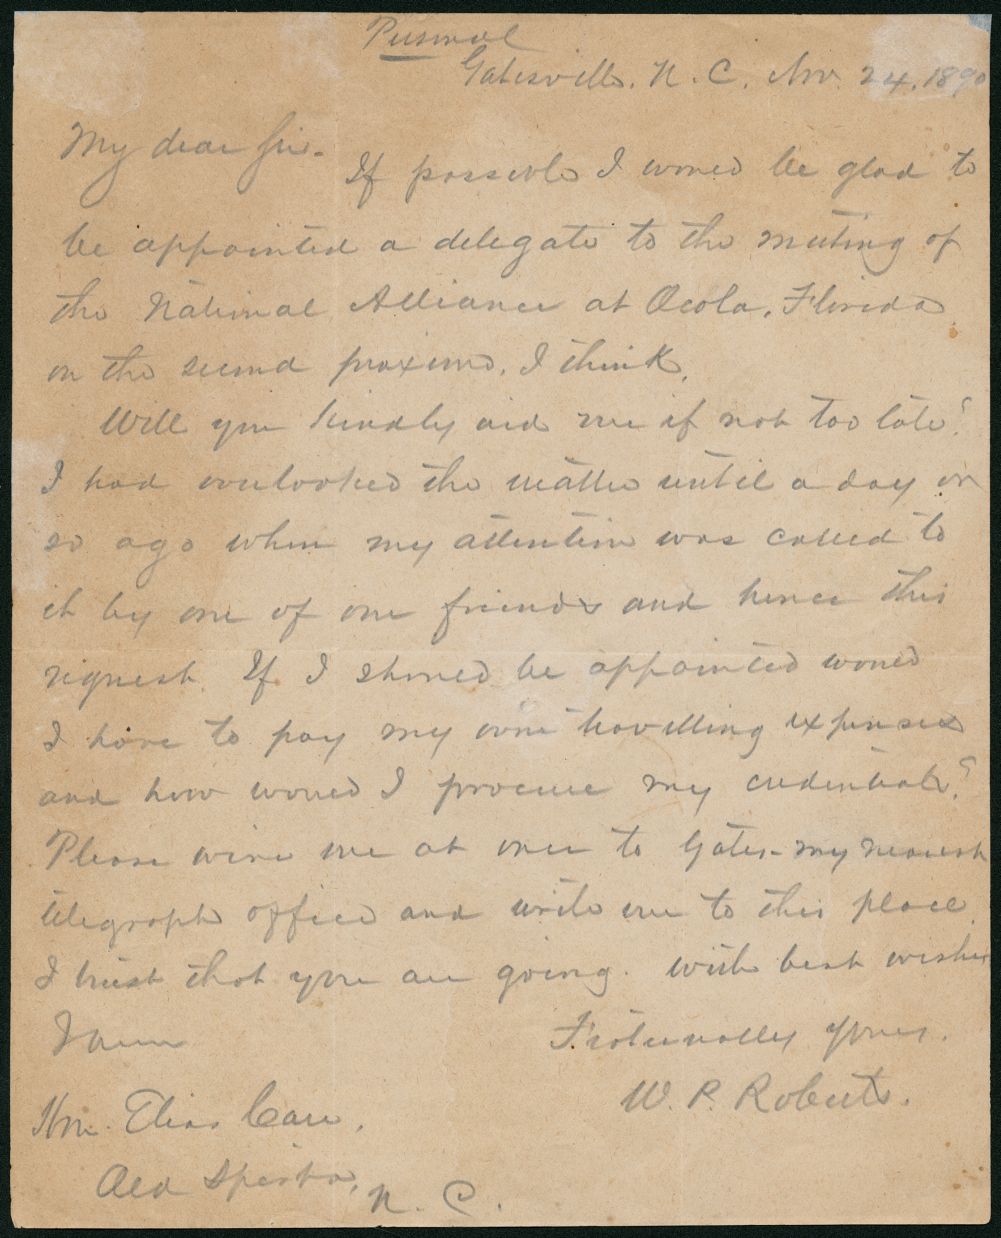 Personal
Gatesville, N. C. Nov. 24, 1890
My dear Sir-
If possible I would be glad to
be appointed a delegate to the meeting of
the National Alliance at Ocola, Florida,
on the second proximo, I think.
Will you kindly aid me if not too late?
I had overlooked the matter until a day or
so ago when my attention was called to
it by one of our friends and hence this
request. If I should be appointed would
I have to pay my own travelling expenses
and how would I procure my credentials?
Please wire me at once to Gates - my nearest
telegraph office and write me to this place.
I trust that you are going. With best wishes
I am
Fraternally yours,
W. P. Roberts.
Hon. Elias Carr,
Old Sparta,
N. C.